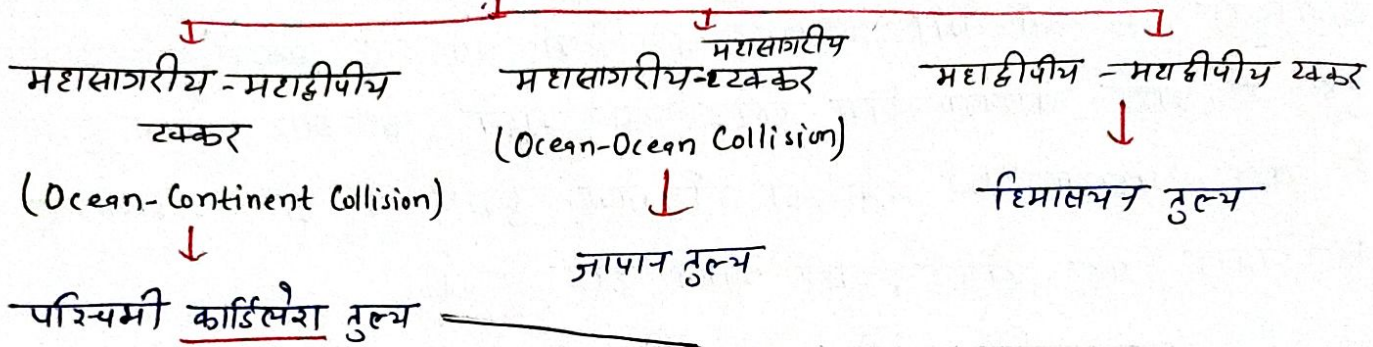 महासागरीय - महाद्वीपीय
टक्कर
(Ocean-Continent Collision)
पश्चिमी कार्डिलेरा तुल्य
महासागरीय
महासागरीय-टक्कर
(Ocean-Ocean Collision)
जापान तुल्य
महाद्वीपीय - महाद्वीपीय टक्कर
हिमालयन तुल्य